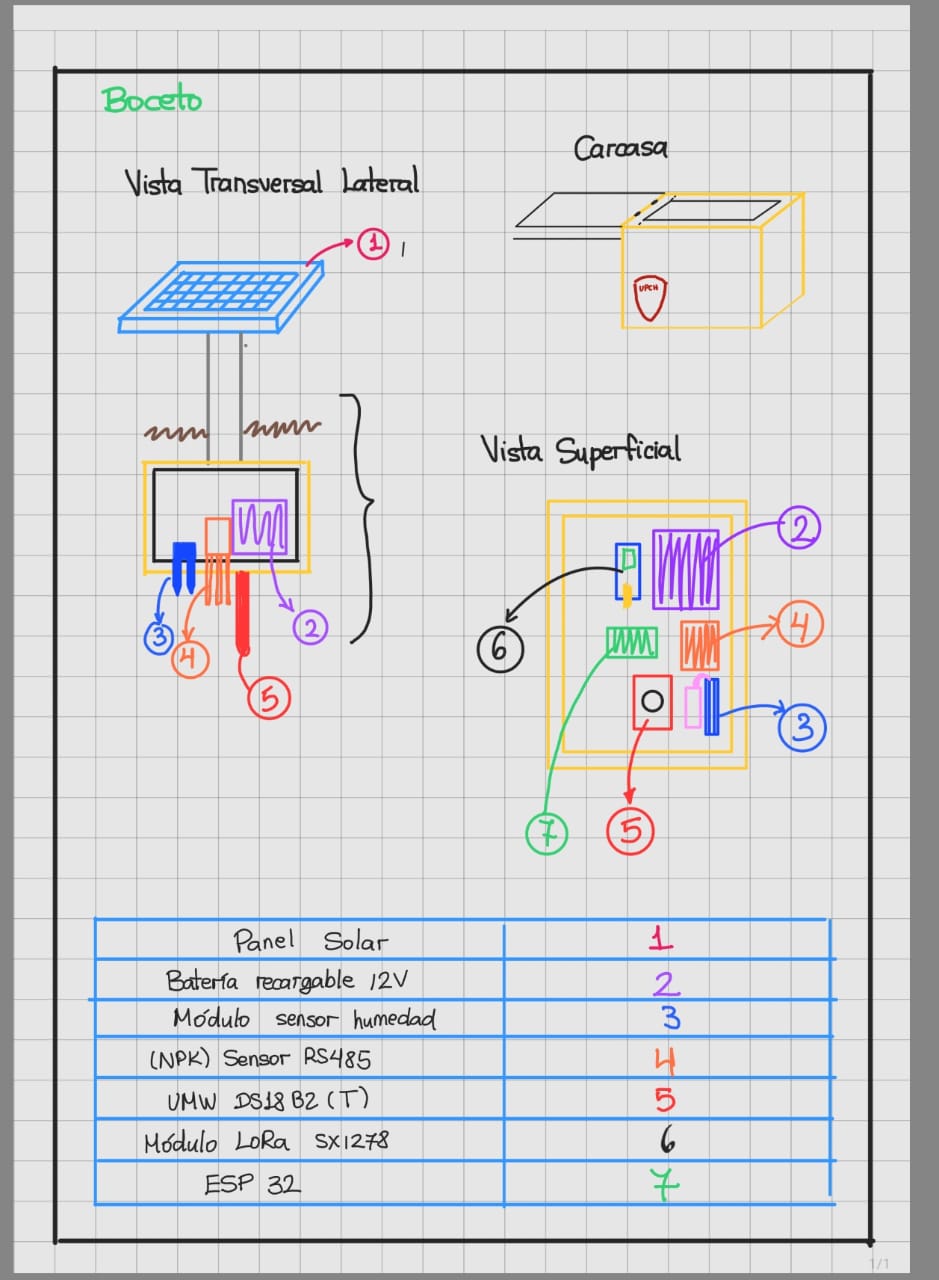 Boceto
Vista Transversal Lateral
1
3
4
2
5
Carcasa
UPCH
Vista Superficial
2
6
4
3
7
5
Panel Solar 1
Batería recargable 12V 2
Módulo sensor humedad 3
(NPK) Sensor RS485 4
UMW DS18B2 (T) 5
Módulo LoRa SX1278 6
ESP 32 7
1/1